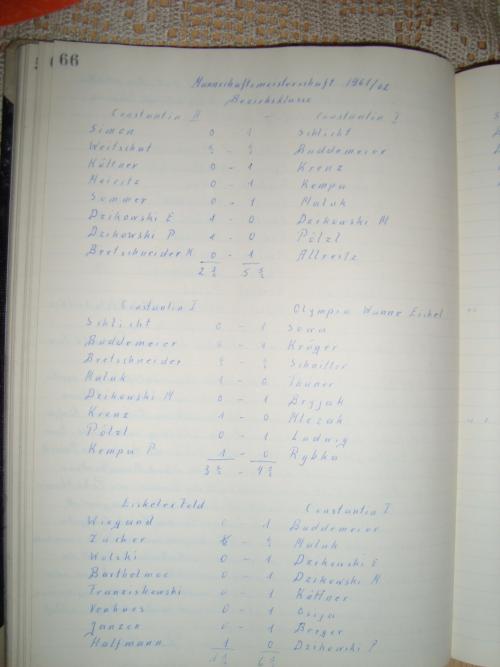 66
Mannschaftsmeisterschaft 1961/62
Bezirksklasse
Constantin II - Constantin I
Simon 0 - 1 Schlicht
Weitschat ½ - ½ Buddemeier
Küttner 0 - 1 Krenz
Meieritz 0 - 1 Kempa
Sommer 0 - 1 Maluk
Dzikowski E 1 - 0 Dzikowski M
Dzikowski P 1 - 0 Pötzl
Bretschneider K 0 - 1 Allreitz
2 ½ 5 ½
Constantin I Olympia Wanne Eickel
Schlicht 0 - 1 Sowa
Buddemeier ½ - ½ Kröger
Bretschneider ½ - ½ Schniller
Maluk 1 - 0 Thüner
Dzikowski M 0 - 1 Bryjak
Krenz 1 - 0 Mlezak
Pötzl 0 - 1 Ludwig
Kempa P 1 - 0 Rybka
3 ½ - 4 ½
Constantin I
Wiegand 0 1 Buddemeier
Zücher ½ - ½ Maluk
Wolski 0 - 1 Dzikowski E
Barthelmae 0 - 1 Dzikowski M
Franziskowski 0 - 1 Küttner
0 - 1
Janzen 0 - 1 Berger
Halfmann 1 0 Dzikowski P
1 ½ 6 ½